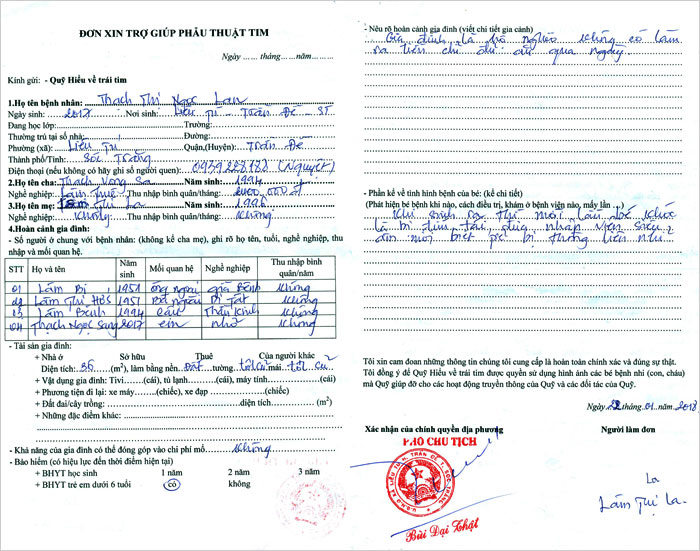 ĐƠN XIN TRỢ GIÚP PHẪU THUẬT TIM
Ngày ...... tháng ......năm.........
Kính gửi: - Quỹ Hiểu về trái tim
1.Họ tên bệnh nhân: Thạch Thị Ngọc Lan
Ngày sinh: 2017 Nơi sinh: Liêu Tú - Trần Đề - ST
Đang học lớp: Trường:
Thường trú tại số nhà: Đường:
Phường (xã): Liêu Tú Quận,(Huyện): Trần Đề
Thành phố/Tỉnh: Sóc Trăng
Điện thoại (nếu không có hãy ghi số người quen): 0939228182 (Nguyệt)
2.Họ tên cha: Thạch Vong Sa Năm sinh: 1994
Nghề nghiệp: Làm Thuê Thu nhập bình quân/tháng: 2000.000đ
3.Họ tên mẹ: Lâm Thị La Năm sinh: 1996
Nghề nghiệp: Không Thu nhập bình quân/tháng: Không
4.Hoàn cảnh gia đình:
- Số người ở chung với bệnh nhân: (không kể cha mẹ), ghi rõ họ tên, tuổi, nghề nghiệp, thu
nhập và mối quan hệ.
STT Họ và tên Năm sinh Mối quan hệ Nghề nghiệp Thu nhập bình quân/năm
01 Lâm Bị 1951 ông ngoại già Bệnh Không
02 Lâm Thị 1957 Bà ngoại Bị Tật Không
03 Lâm Bênh 1994 cậu Thần Kinh Không
04 Thạch Ngọc Sang 2017 em nhỏ Không
- Tài sản gia đình:
+ Nhà ở Sở hữu Thuê Của người khác
Diện tích: 36 (m2), làm bằng nền Đất tường tol cũ mái tol cũ
+ Vật dụng gia đình: Tivi......(cái), tủ lạnh......(cái), máy tính......(cái)
+ Phương tiện đi lại: xe máy......(chiếc), xe đạp ............(chiếc)
+ Đất đai/cây trồng: ............diện tích ............ (m2)
+ Những đặc điểm khác:
- Khả năng của gia đình có thể đóng góp vào chi phí mổ Không
- Bảo hiểm (có hiệu lực đến thời điểm hiện tại)
+ BHYT học sinh 1 năm 2 năm 3 năm
+ BHYT trẻ em dưới 6 tuổi có không
- Nêu rõ hoàn cảnh gia đình (viết chi tiết gia cảnh)
Gia đình là hộ nghèo không có làm
ra tiền chỉ đủ ăn qua ngày
- Phần kể về tình hình bệnh của bé: (kể chi tiết)
(Phát hiện bé bệnh khi nào, cách điều trị, khám ở bệnh viện nào, mấy lần ...)
Khi sinh ra thì mỗi lần bé khóc
là bị tím tái, nhập viện siêu
âm mới biết bé bị thông liên nhĩ.
Tôi xin cam đoan những thông tin chúng tôi cung cấp là hoàn toàn chính xác và đúng sự thật.
Tôi đồng ý để Quỹ Hiểu về trái tim được quyền sử dụng hình ảnh các bé bệnh nhi (con, cháu)
mà Quỹ giúp đỡ cho các hoạt động truyền thông của Quỹ và các đối tác của Quỹ.
Ngày 22 tháng 01 năm 2018
Xác nhận của chính quyền địa phương Người làm đơn
PHÓ CHỦ TỊCH
Bùi Đại Thật
La
Lâm Thị La